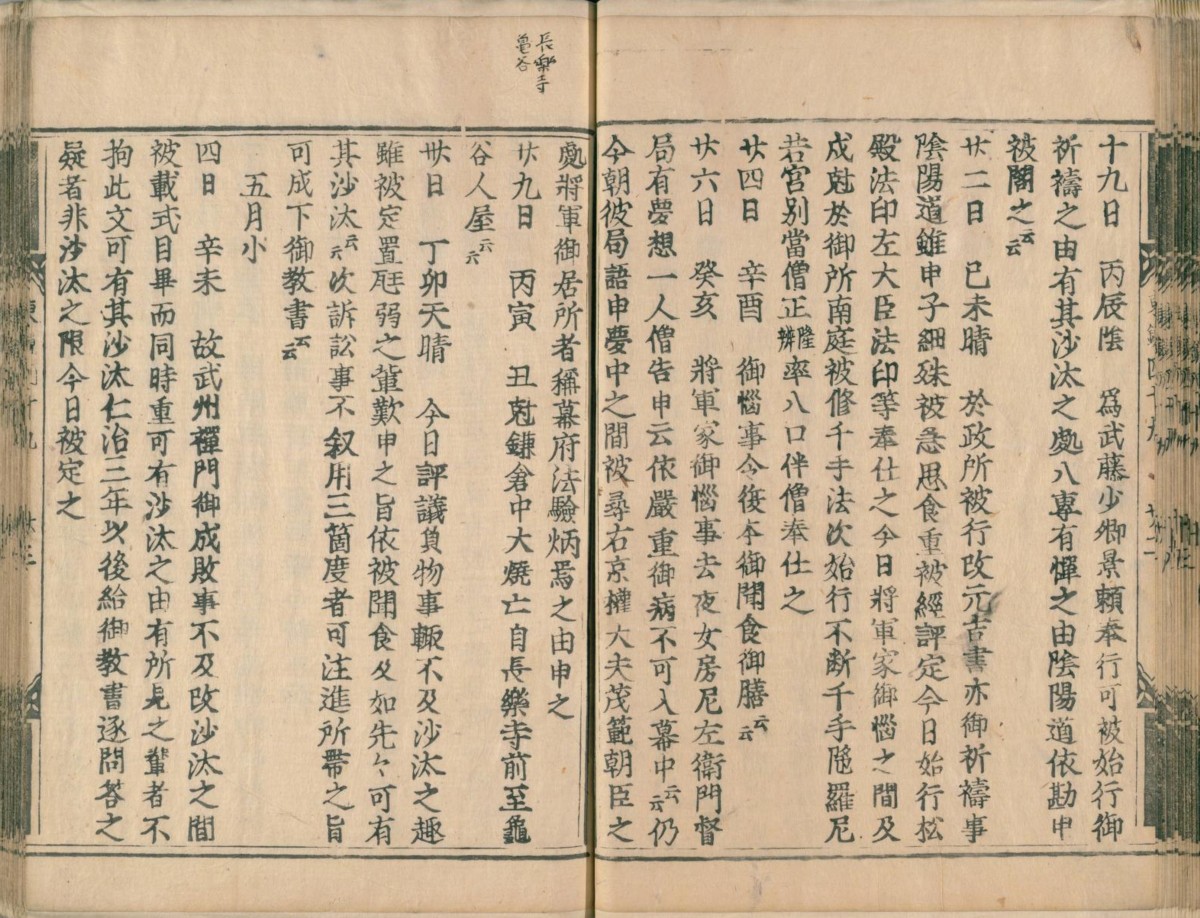 十九日　丙辰陰　爲武藤少卿景頼奉行可被始行御
祈禱之由有其沙汰之處八專有憚之由陰陽道依勘申
被閣之云云
廿二日　己未晴　於政所被行改元吉書亦御祈禱事
陰陽道雖申子細殊被怠思食重被經評定今日始行松
殿法印左大臣法印等奉仕之今日將軍家御惱之間及
戍尅於御所南庭被修千手法次始行不断千手陁羅尼
若宮別當僧正隆辨率八口伴僧奉仕之
廿四日　辛酉　御惱事令復本御聞食御膳云云
廿六日　癸亥　將軍家御惱事去夜女房尼左衛門督
局有夢想一人僧告申云依嚴重御病不可入幕中云云仍
今朝彼局語申夢中之間被尋右京權大夫茂範朝臣之
處將軍御居所者稱幕府法驗炳焉之由申之
廿九日　丙寅　丑尅鎌倉中大燒亡自長樂寺前至龜
谷人屋云云
卅日　丁卯天晴　今日評議負物事輙不及沙汰之趣
雖被定置尫弱之輩歎申之旨依被聞食及如先々可有
其沙汰云云次訴訟事不叙用三箇度者可注進所帶之旨
可成下御教書云云
五月小
四日　辛未　故武州禪門御成敗事不及改沙汰之間
被載式目畢而同時重可有沙汰之由有所見之輩者不
拘此文可有其沙汰仁治三年以後給御教書逐問答之
疑者非沙汰之限今日被定之
長樂寺
亀谷